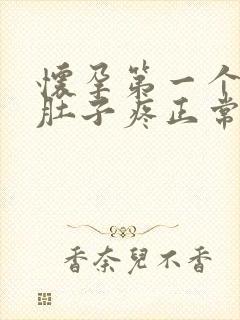 怀孕第一个
肚子疼正常
香奈兒不香